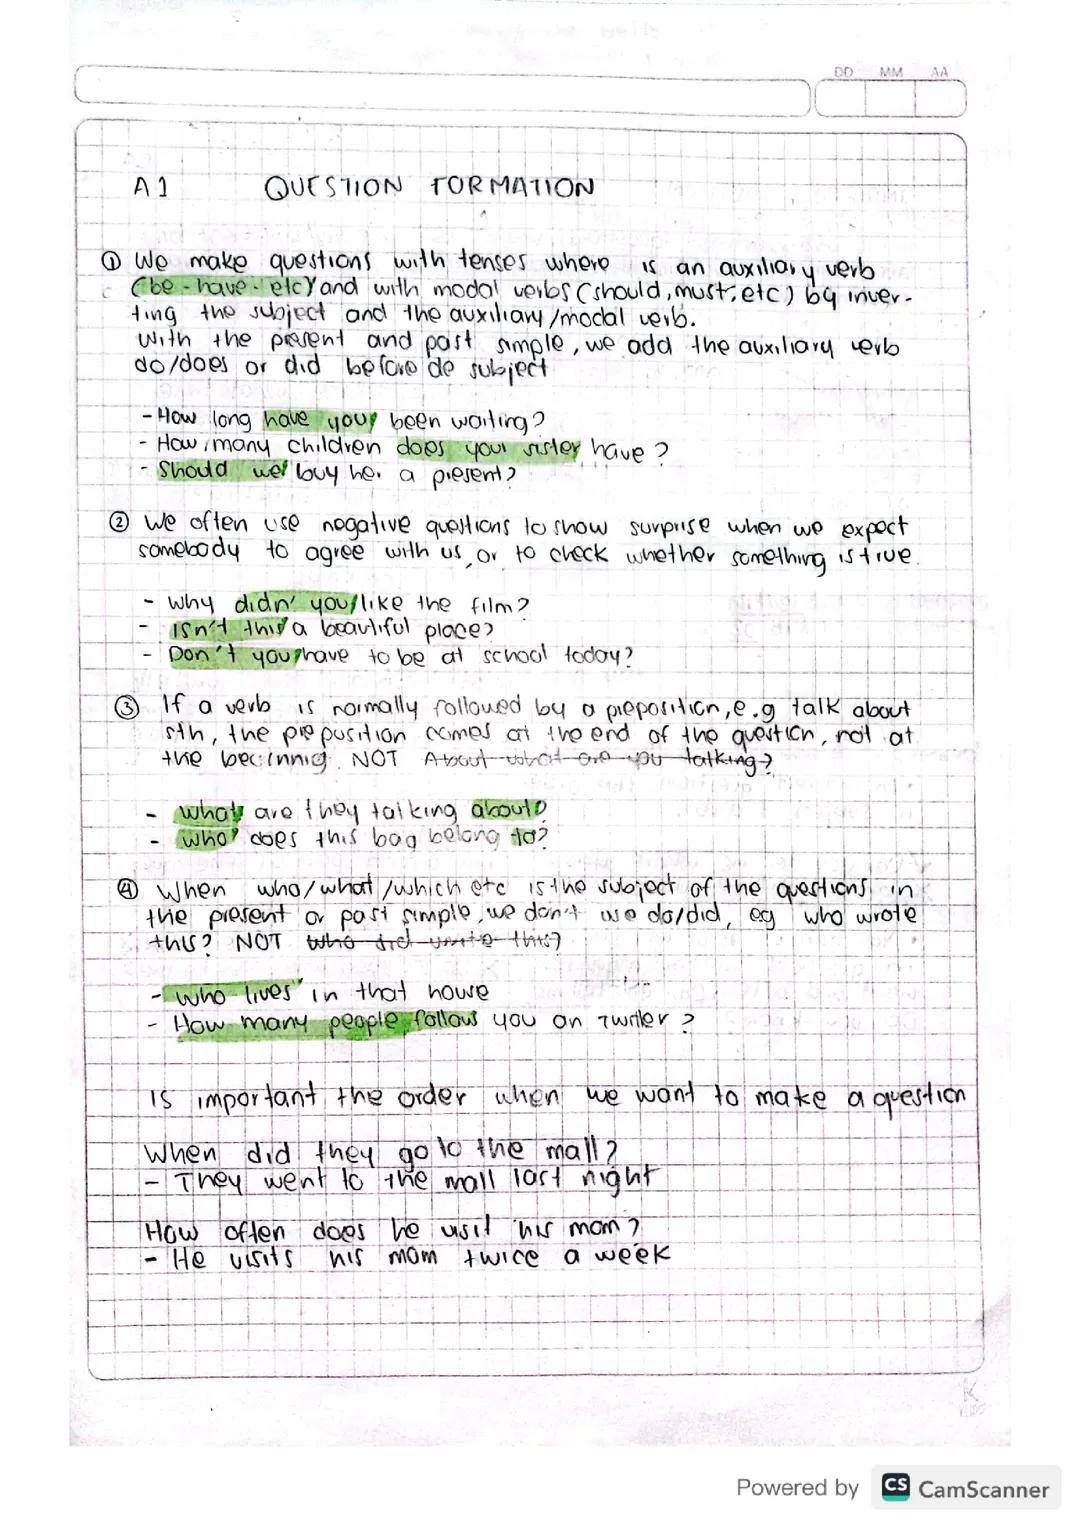 DD MM AA
A1 QUESTION FORMATION
① We make questions with tenses where is an auxiliary verb
(be - have - etc) and with modal verbs (should, must, etc) by inver-
ting the subject and the auxiliary/modal verb.
with the present and past simple, we add the auxiliary verb
do/does or did before de subject
- How long have you been waiting?
- How many children does your sister have?
- Should we buy her a present?
② We often use negative questions to show surprise when we expect
somebody to agree with us, or to check whether something is true.
- Why didn' you like the film?
- Isn't this a beautiful place?
- Don't you have to be at school today?
③ If a verb is normally followed by a preposition, e.g talk about
sth, the preposition comes at the end of the question, not at
the beginnig. NOT About what are you talking?
- what are they talking about?
- who does this bag belong to?
④ When who/what/which etc is the subject of the questions in
the present or past simple, we don't use do/did, eg who wrote
this? NOT who did write this?
- who lives in that house
- How many people follow you on Twitter?
Is important the order when we want to make a question
When did they go to the mall?
- They went to the mall last night
How often does he visit his mom?
- He visits his mom twice a week
K
Powered by CS CamScanner